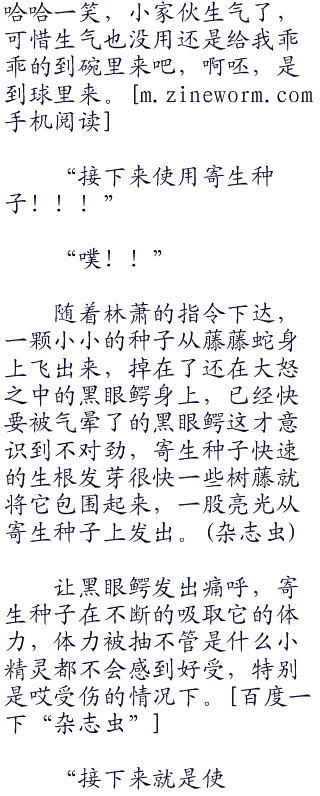 哈哈一笑，小家伙生气了，
可惜生气也没用还是给我乖
乖的到碗里来吧，啊呸，是
到球里来。[m.zineworm.com
手机阅读]
“接下来使用寄生种
子！！！”
“噗！！”
随着林萧的指令下达，
一颗小小的种子从藤藤蛇身
上飞出来，掉在了还在大怒
之中的黑眼鳄身上，已经快
要被气晕了的黑眼鳄这才意
识到不对劲，寄生种子快速
的生根发芽很快一些树藤就
将它包围起来，一股亮光从
寄生种子上发出。(杂志虫)
让黑眼鳄发出痛呼，寄
生种子在不断的吸取它的体
力，体力被抽不管是什么小
精灵都不会感到好受，特别
是哎受伤的情况下。[百度一
下“杂志虫”]
“接下来就是使